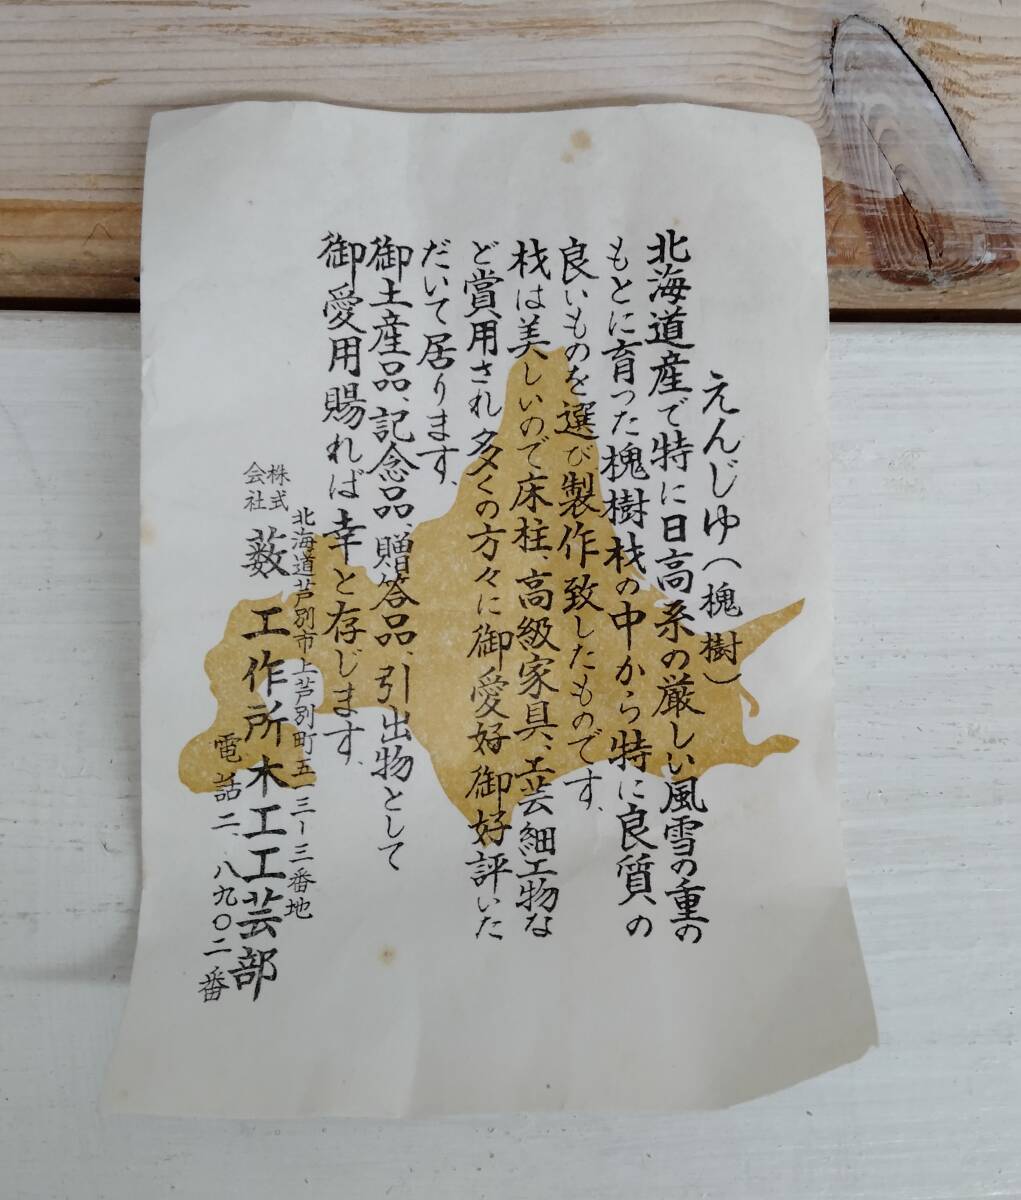 えんじゆ（槐樹）
北海道産で特に日高系の厳しい風雪の重の
もとに育った槐樹材の中から特に良質の
良いものを選び製作致したものです、
材は美しいので床柱、高級家具、工芸細工物な
ど賞用され多くの方々に御愛好御好評いた
だいて居ります、
御土産品、記念品、贈答品、引出物として
御愛用賜れば幸と存じます、
北海道芦別市上芦別町五一三ー三番地
株式会社 薮工作所木工工芸部
電話二、八九〇二番